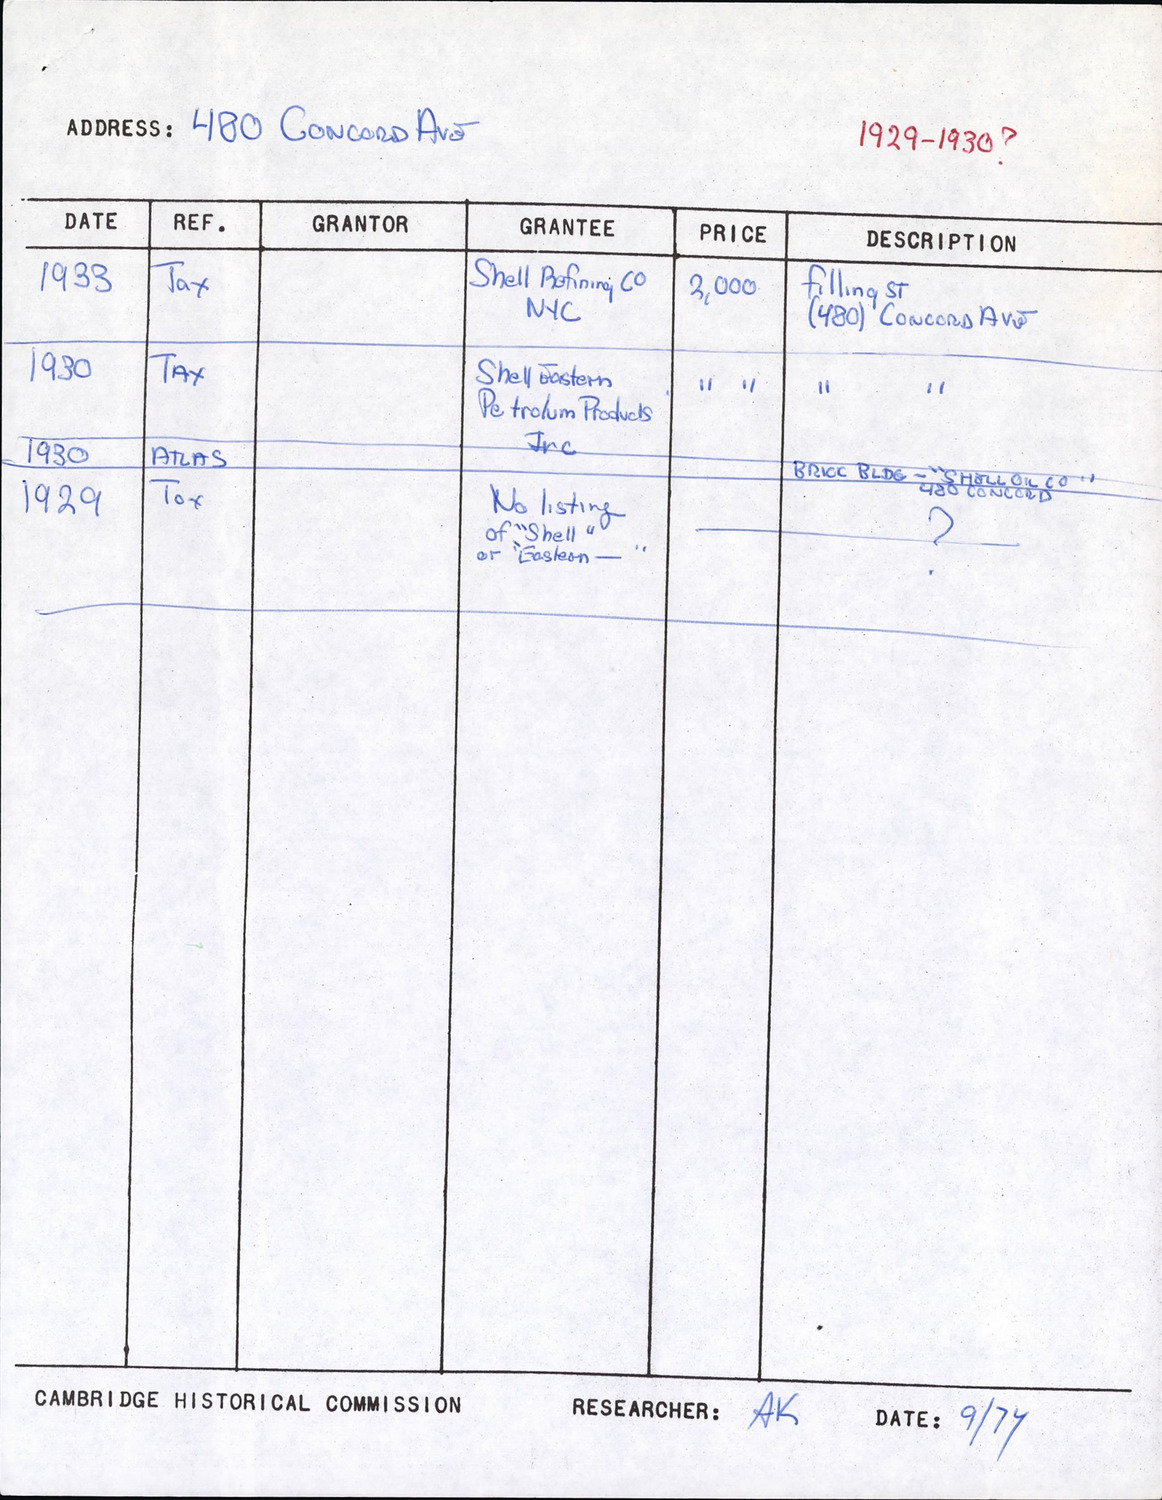 ADDRESS: 480 CONCORD AVE
1929-1930?
DATE REF. GRANTOR GRANTEE PRICE DESCRIPTION
1933 Tax Shell Refining Co 2,000 filling ST
NYC (480) CONCORD AVE
1930 TAX Shell Eastern " " " "
Petrolum Products
Inc
1930 ATLAS BRICK BLDG - "SHELL OIL CO"
480 CONCORD
1929 Tax No listing ?
of "Shell"
or "Eastern — "
CAMBRIDGE HISTORICAL COMMISSION RESEARCHER: AK DATE: 9/74